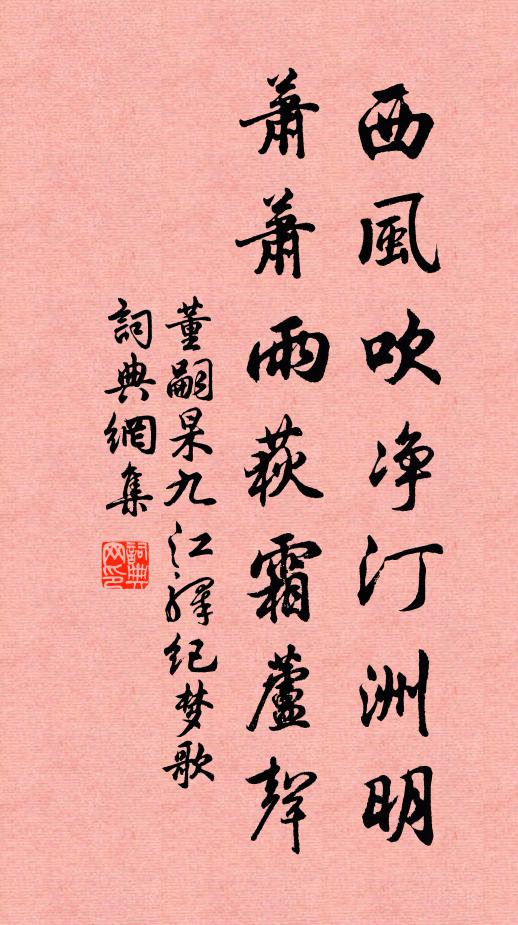 西風吹净汀洲明
蕭蕭雨荻霜蘆聲
董嗣杲九江驛紀梦歌
詞典網集
詞典网印